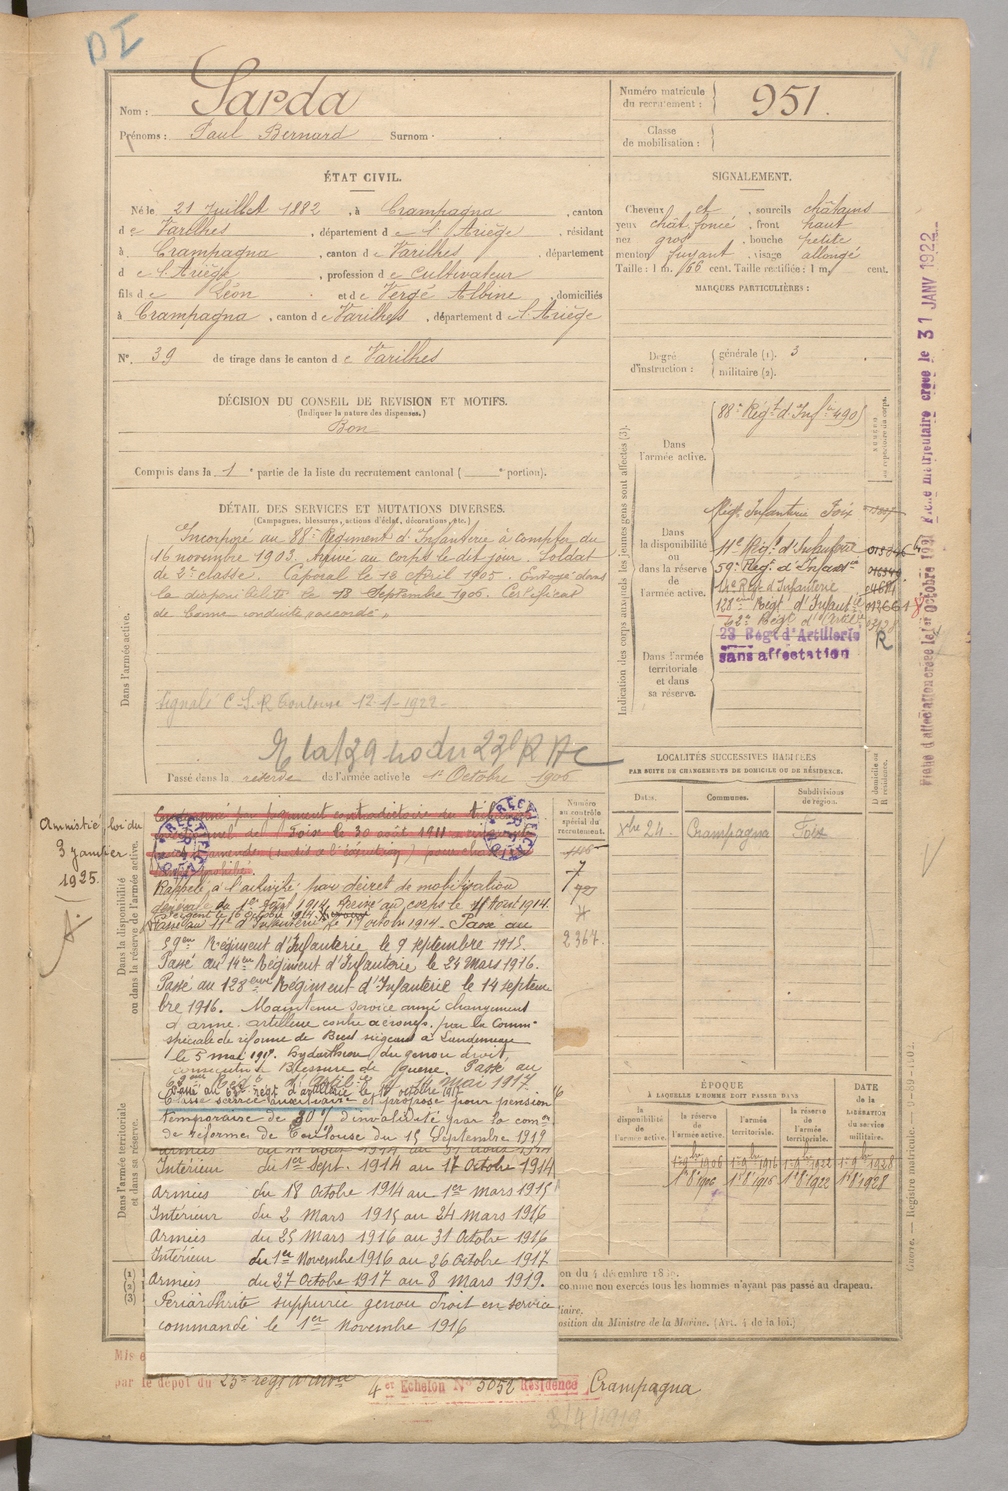 DI
Nom : Sarda
Prénoms : Paul Bernard Surnom :
Numéro matricule du recrutement : 951.
Classe de mobilisation :
ÉTAT CIVIL.
Né le 21 Juillet 1882, à Crampagna, canton
de Varilhes, département de l'Ariège, résidant
à Crampagna, canton de Varilhes, département
de l'Ariège, profession de cultivateur
fils de Léon et de Vergé Albine, domiciliés
à Crampagna, canton de Varilhes, département d l'Ariège
N° 39 de tirage dans le canton de Varilhes
SIGNALEMENT.
Cheveux ch, sourcils châtains
yeux chât. foncé, front haut
nez gros, bouche petite
menton fuyant, visage allongé
Taille : 1 m. 66 cent. Taille rectifiée : 1 m. cent.
MARQUES PARTICULIÈRES :
Degré d'instruction : générale (1). 3
militaire (2).
DÉCISION DU CONSEIL DE REVISION ET MOTIFS.
(Indiquer la nature des dispenses.)
Bon
Compris dans la 1e partie de la liste du recrutement cantonal ( e portion).
DÉTAIL DES SERVICES ET MUTATIONS DIVERSES.
(Campagnes, blessures, actions d'éclat, décorations, etc.)
Dans l'armée active.
Incorporé au 88e Régiment d'Infanterie à compter du
16 novembre 1903. Arrivé au corps le dit jour. Soldat
de 2e classe. Caporal le 18 Avril 1905. Envoyé dans
la disponibilité le 18 Septembre 1906. Certificat
de bonne conduite "accordé"
Signalé C.S.R Toulouse 12-1-1922
Passé dans la réserve de l'armée active le 1er Octobre 1906
Indication des corps auxquels les jeunes gens sont affectés (3).
Dans l'armée active.
88e Régt d'Infie 490
NUMÉRO
Dans la disponibilité ou dans la réserve de l'armée active.
Régt Infanterie Foix
11e Régt d'Infanterie
59e Régt d'Infanterie
14e Régt d'Infanterie
128eme Régt d'Infanterie
Dans l'armée territoriale et dans sa réserve.
23 Régt d'Artillerie
sans affectation
R
Fiche d'affectation créée le 1er Octobre 1921 Fiche matriculaire créée le 31 JANV 1922
LOCALITÉS SUCCESSIVES HABITÉES
PAR SUITE DE CHANGEMENTS DE DOMICILE OU DE RÉSIDENCE.
Dates. Communes. Subdivisions de région. D domicile ou R résidence.
Xbre 24. Crampagna Foix
Numéro au contrôle spécial du recrutement.
7
2367.
Amnistié loi du
3 janvier
1925.
Dans la disponibilité ou dans la réserve de l'armée active.
Condamné par jugement contradictoire du tribunal
correctionnel de Foix le 30 août 1911
RECTIFICATION
Rappelé à l'activité par décret de mobilisation
générale du 1er Août 1914. Arrivé au corps le 11 Août 1914.
Sergent le 16 octobre 1914.
Passé au 11e d'Infanterie le 19 octobre 1914. Passé au
59eme Régiment d'Infanterie le 9 septembre 1915.
Passé au 14eme Régiment d'Infanterie le 24 Mars 1916.
Passé au 128eme Régiment d'Infanterie le 14 septem
bre 1916. Maintenu service armé changement
d'arme. artillerie contre aéronefs. par la Comm.
spéciale de réforme de
le 5 mai 1917. hydarthrose du genou droit,
Blessure de guerre. Passé au
mai 1917.
Classé service auxiliaire et proposé pour pension
temporaire de 30% d'invalidité par la comon
de réforme de Toulouse du 15 Septembre 1919
Dans l'armée territoriale et dans sa réserve.
Intérieur du 1er sept. 1914 au 17 Octobre 1914
Armées du 18 Octobre 1914 au 1er Mars 1915
Intérieur du 2 Mars 1915 au 24 Mars 1916
Armées du 25 Mars 1916 au 31 Octobre 1916
Intérieur du 1er Novembre 1916 au 26 Octobre 1917
Armées du 27 Octobre 1917 au 8 Mars 1919.
Périarthrite suppurée genou droit en service
commandé le 1er Novembre 1916
ÉPOQUE
À LAQUELLE L'HOMME DOIT PASSER DANS
la disponibilité de l'armée active. la réserve de l'armée active. l'armée territoriale. la réserve de l'armée territoriale. DATE de la LIBÉRATION du service militaire.
1er 9bre 1906 1er 9bre 1916 1er 9bre 1922 1er 9bre 1928
1er 8bre 1906 1er 8bre 1916 1er 8bre 1922 1er 8bre 1928
comme non exercés tous les hommes n'ayant pas passé au drapeau.
osition du Ministre de la Marine. (Art. 4 de la loi.)
par le dépôt du 23e régt d'artie
4er Echelon N° 5052 Résidence Crampagna